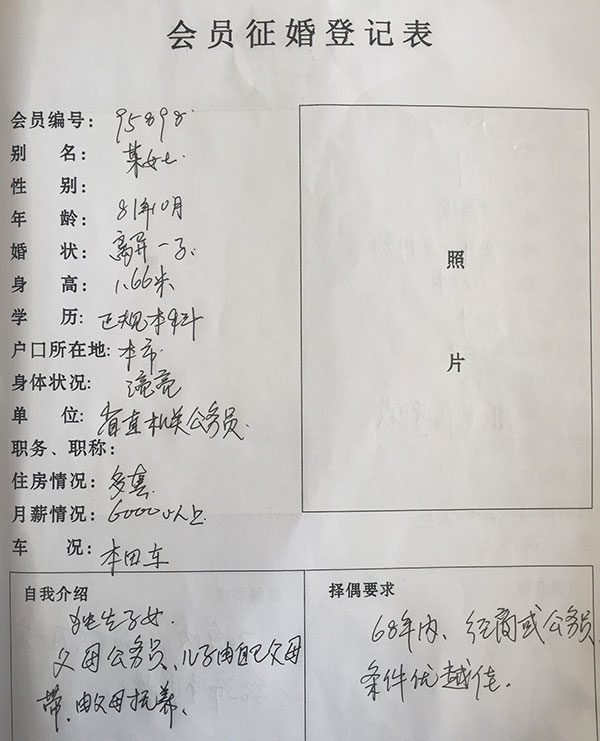 会员征婚登记表
会员编号: 95898
别 名: 某女士
性 别:
年 龄: 81年10月
婚 状: 离异一子
身 高: 1.66米
学 历: 正规本科
户口所在地: 本市
身体状况: 漂亮
单 位: 省直机关公务员
职务、职称:
住房情况: 多套
月薪情况: 6000以上
车 况: 本田车
照
片
自我介绍
独生子女
父母公务员、儿子由自己父母
带、由父母抚养、
择偶要求
68年内、经商或公务员
条件优越佳.